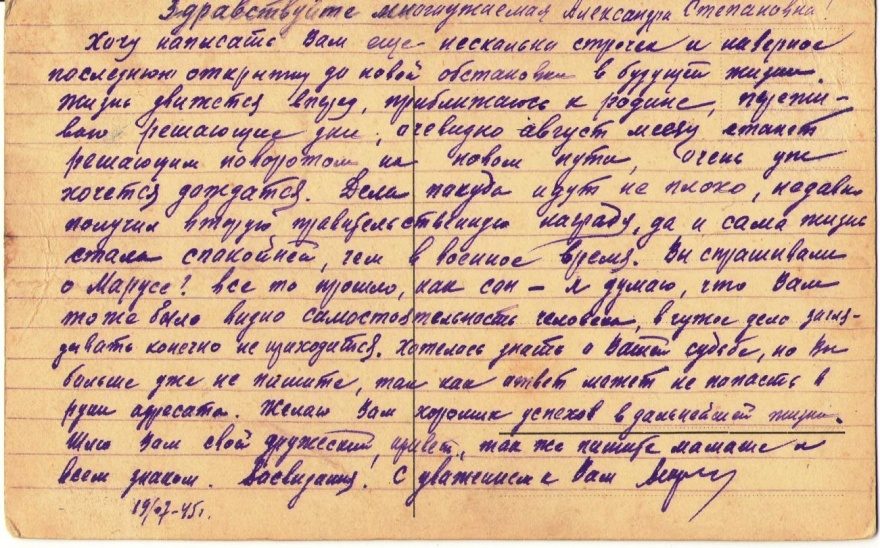 Здравствуйте многоуважаемая Александра Степановна!
Хочу написать Вам еще несколько строчек и наверное
последнюю открытку до новой обстановки в будущей жизни.
Жизнь движется вперед, приближаюсь к родине, пережи-
ваю решающие дни, очевидно август месяц станет
решающим поворотом на новом пути, очень уж
хочется дождатся. Дела покуда идут не плохо, недавно
получил вторую правительственную награду, да и сама жизнь
стала спокойней, чем в военное время. Вы спрашивали
о Марусе? все то прошло, как сон – я думаю, что Вам
тоже было видно самостоятельность человека, в чужое дело загля-
дывать конечно не приходится. Хотелось знать о Вашей судьбе, но Вы
больше уже не пишите, так как ответ может не попасть в
руки адресата. Желаю Вам хороших успехов в дальнейшей жизни.
Шлю Вам свой дружеский привет, так же пишите мамаше и
всем знаком. Досвидания. С уважением к Вам
19/07-45г.